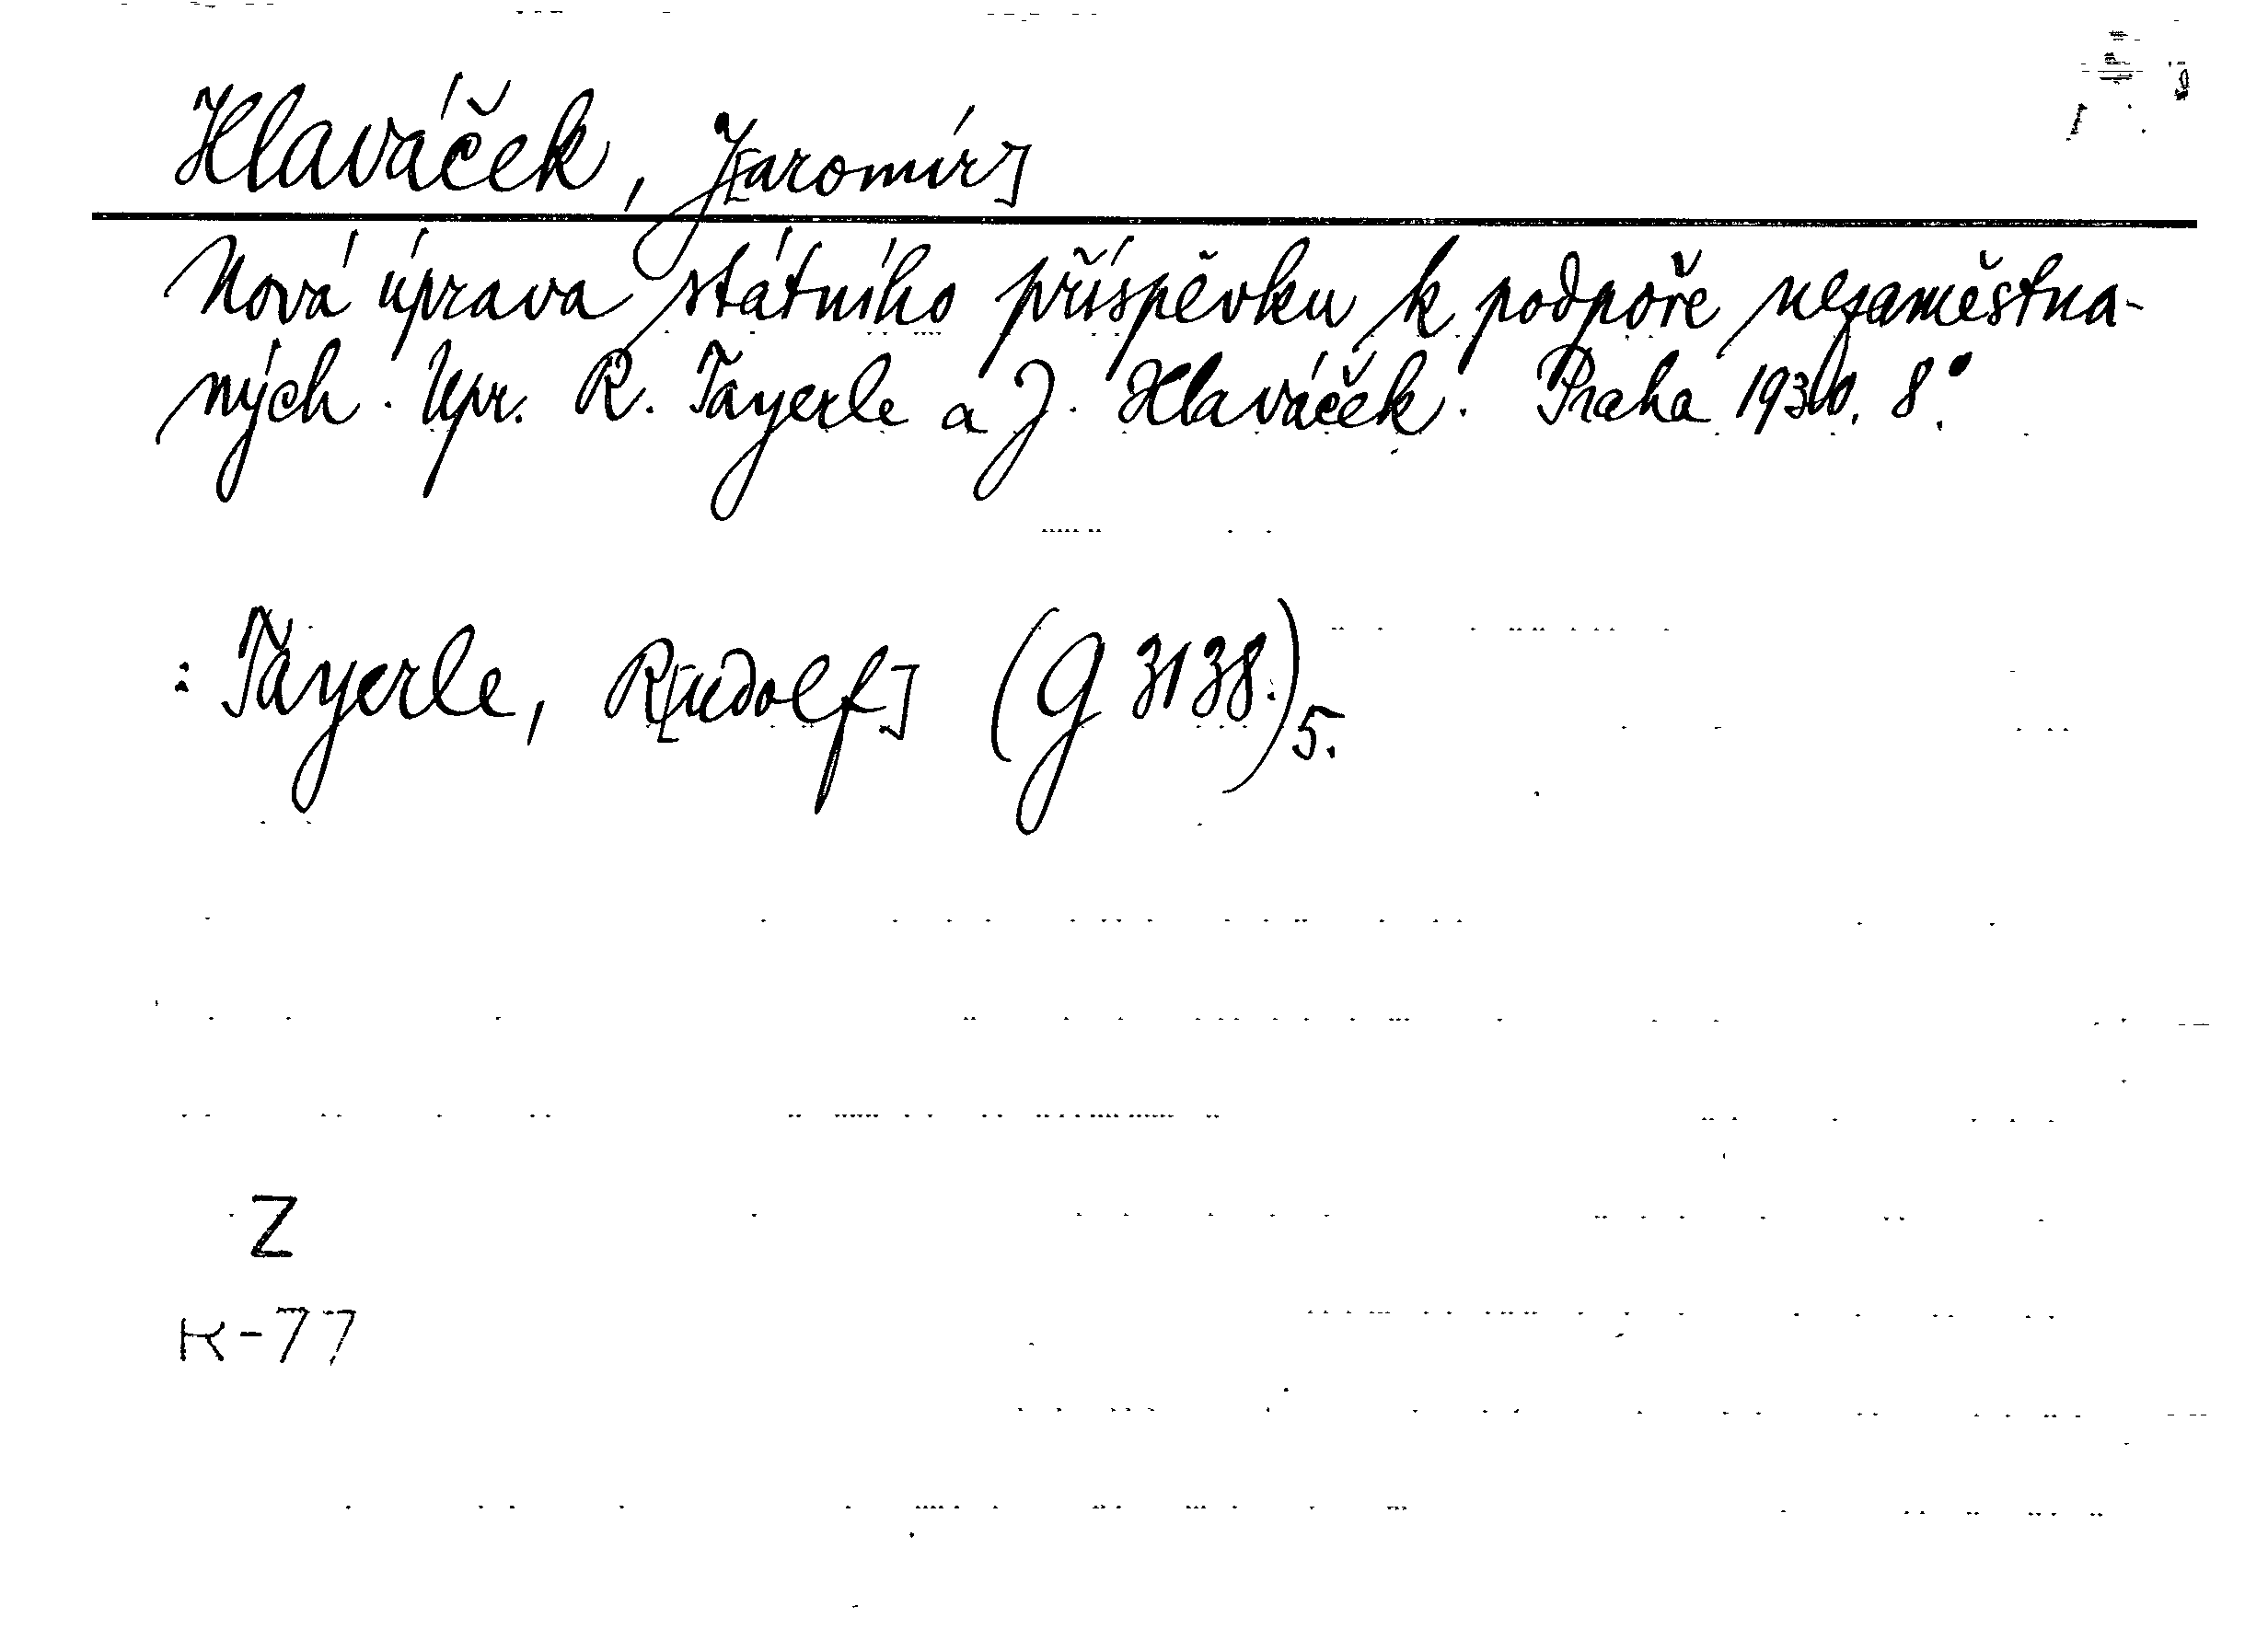 Hlaváček, J[aromír]
Nová úprava státního příspěvku k podpoře nezaměstna-
ných. Upr. R. Tayerle a J. Hlaváček. Praha 1930. 8°.
: Tayerle, R[udolf] (G 3138.)5.
Z
K-77